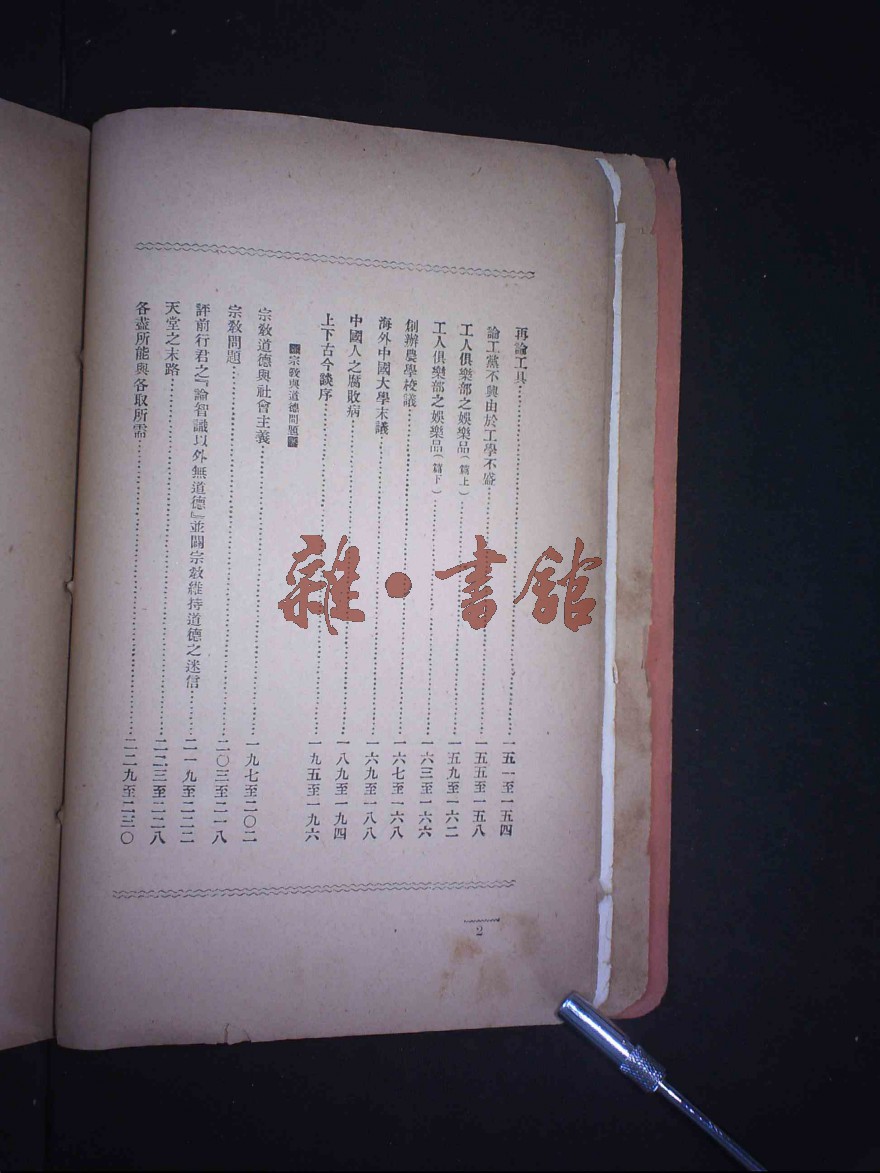 再論工具……一五一至一五四
論工黨不興由於工學不盛……一五五至一五八
工人俱樂部之娛樂品(篇上)……一五九至一六二
工人俱樂部之娛樂品(篇下)……一六三至一六六
創辦農學校議……一六七至一六八
海外中國大學末議……一六九至一八八
中國人之腐敗病……一八九至一九四
上下古今談序……一九五至一九六
宗敎與道德問題
宗敎道德與社會主義……一九七至二〇二
宗敎問題……二〇三至二一八
評前行君之『論智識以外無道德』並闢宗敎維持道德之迷信……二一九至二二二
天堂之末路……二二三至二二八
各盡所能與各取所需……二二九至二三〇
2
雜·書館